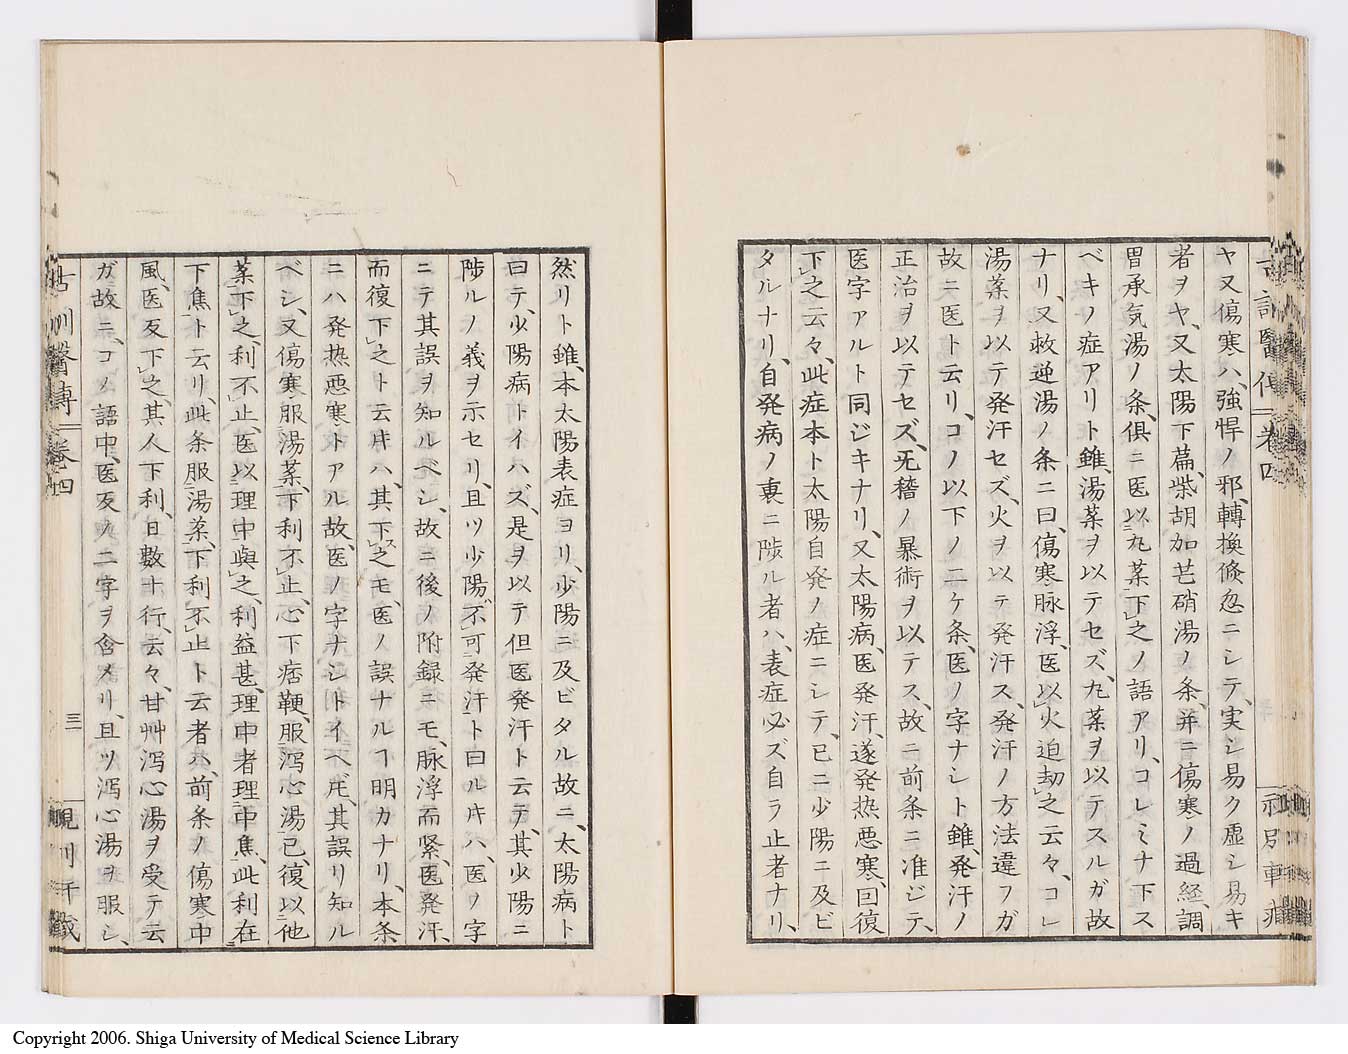 ヤ又傷寒ハ、強悍ノ邪、轉換倏忽ニシテ、実シ易ク虚シ易キ
者ヲヤ、又太陽下篇、柴胡加芒硝湯ノ条、并ニ傷寒ノ過経、調
胃承気湯ノ条、俱ニ医以丸薬下之ノ語アリ、コレミナ下ス
ベキノ症アリト雖、湯薬ヲ以テセズ、丸薬ヲ以テスルガ故
ナリ、又救逆湯ノ条ニ曰、傷寒脉浮、医以火迫劫之云々、コレ
湯薬ヲ以テ発汗セズ、火ヲ以テ発汗ス、発汗ノ方法違フガ
故ニ医ト云リ、コノ以下ノ二ケ条、医ノ字ナシト雖、発汗ノ
正治ヲ以テセズ、旡稽ノ暴術ヲ以テス、故ニ前条ニ准ジテ、
医字アルト同ジキナリ、又太陽病、医発汗、遂発熱悪寒、回復
下之云々、此症本ト太陽自発ノ症ニシテ、已ニ少陽ニ及ビ
タルナリ、自発病ノ裏ニ陟ル者ハ、表症必ズ自ラ止者ナリ、
然リト雖、本太陽表症ヨリ、少陽ニ及ビタル故ニ、太陽病ト
曰テ、少陽病トイハズ、是ヲ以テ但医発汗ト云テ、其少陽ニ
陟ルノ義ヲ示セリ、且ツ少陽不可発汗ト曰ル𪜈ハ、医ノ字
ニテ其誤ヲ知ルベシ、故ニ後ノ附録ニモ、脉浮而緊、医発汗、
而復下之ト云𪜈ハ、其下之モ、医ノ誤ナルヿ明カナリ、本条
ニハ発熱悪寒トアル故、医ノ字ナシトイヘ𪜈、其誤リ知ル
ベシ、又傷寒服湯薬、下利不止、心下痞鞕、服瀉心湯已、復以他
薬下之、利不止、医以理中與之、利益甚、理中者理中焦、此利在
下焦ト云リ、此条服湯薬、下利不止ト云者ハ、前条ノ傷寒中
風、医反下之、其人下利、日數十行、云々、甘艸瀉心湯ヲ受テ云
ガ故ニ、コノ語中、医反ノ二字ヲ含メリ、且ツ瀉心湯ヲ服シ、
卷四
三
Copyright 2006. Shiga University of Medical Science Library